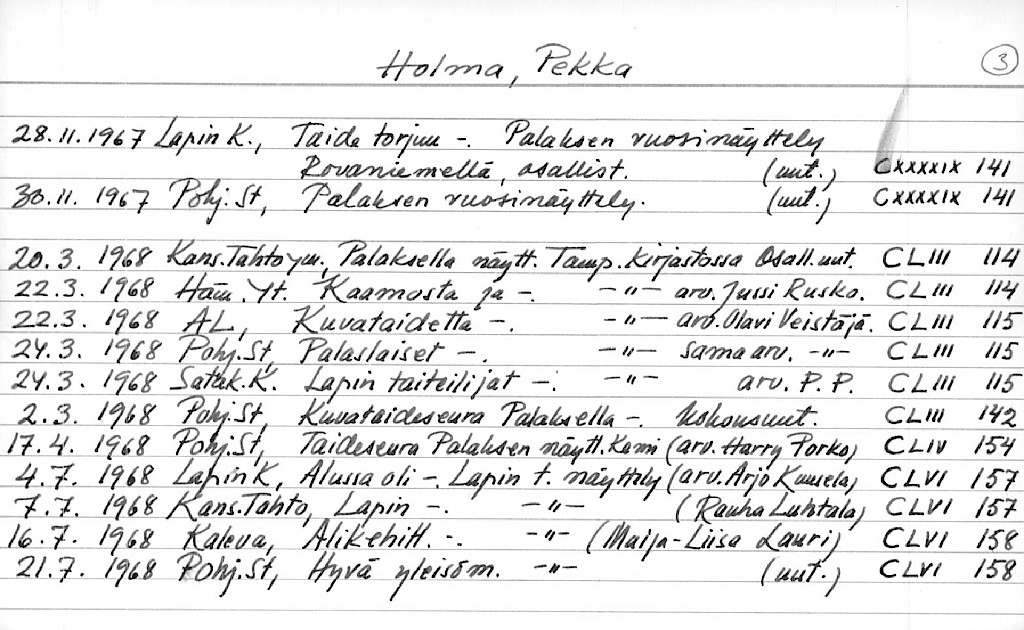 Holma, Pekka
3
28.11.1967 Lapin K., Taide torjuu -. Palaksen vuosinäyttely
Rovaniemellä, osallist. (uut.) CXXXXIX 141
30.11.1967 Pohj.St, Palaksen vuosinäyttely. (uut.) CXXXXIX 141
20.3. 1968 Kans.Tahto ym., Palaksella näytt. Tamp.kirjastossa Osall.uut. CLIII 114
22.3. 1968 Häm.Yt. Kaamosta ja -. -"- arv. Jussi Rusko. CLIII 114
22.3. 1968 AL, Kuvataidetta -. -"- arv. Olavi Veistäjä. CLIII 115
24.3. 1968 Pohj.St, Palaslaiset -. -"- sama arv. -"- CLIII 115
24.3. 1968 Satak.K. Lapin taiteilijat -. -"- arv. P.P. CLIII 115
2.3. 1968 Pohj.St, Kuvataideseura Palaksella -. Kokousuut. CLIII 142
17.4. 1968 Pohj.St, Taideseura Palaksen näytt. Kemi (arv. Harry Porko) CLIV 154
4.7. 1968 Lapin K, Alussa oli -. Lapin t. näyttely (arv. Arjo Kuusela) CLVI 157
7.7. 1968 Kans.Tahto, Lapin -. -"- (Rauha Luhtala) CLVI 157
16.7. 1968 Kaleva, Alikehitt. -. -"- (Maija-Liisa Lauri) CLVI 158
21.7. 1968 Pohj.St, Hyvä yleisöm. -"- (uut.) CLVI 158